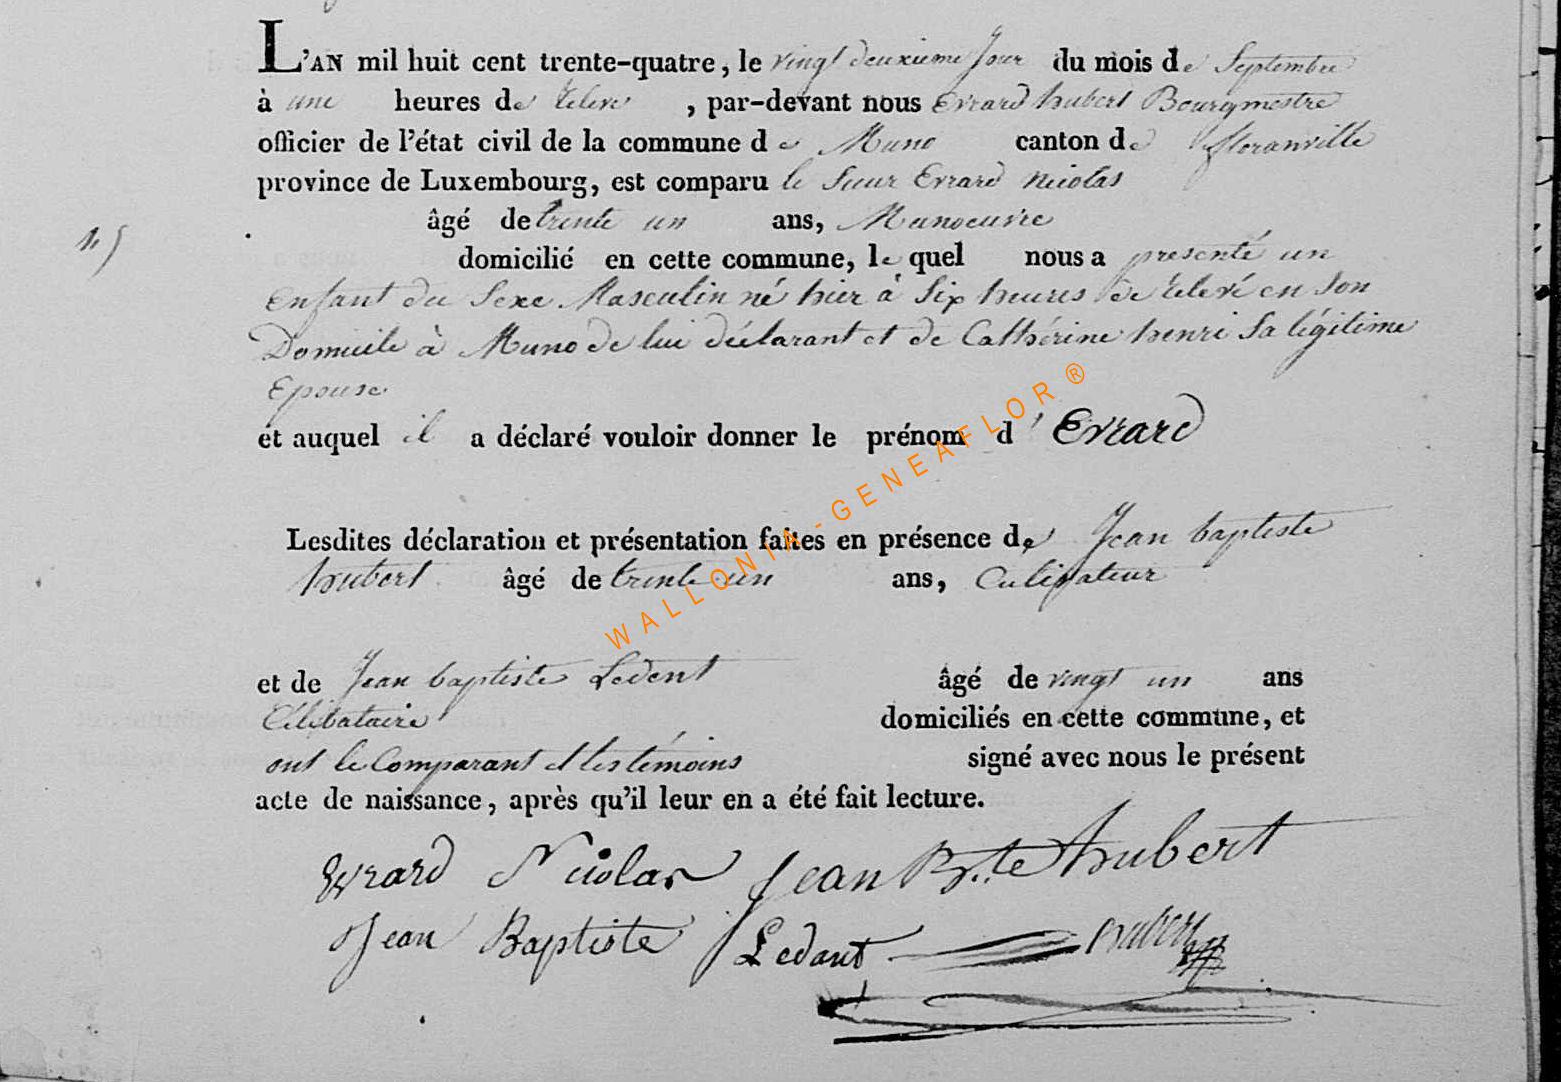 L'AN mil huit cent trente-quatre, le vingt deuxieme Jour du mois de Septembre
à une heures de relevé , par-devant nous Evrard hubert Bourgmestre
officier de l'état civil de la commune de Muno canton de floranville
province de Luxembourg, est comparu le Sieur Evrard Nicolas
âgé de trente un ans, Manoeuvre
45
domicilié en cette commune, le quel nous a presenté un
Enfant du Sexe Masculin né hier à Six heures de relevé en Son
Domicile à Muno de lui déclarant et de Cathérine henri Sa légitime
Epouse
et auquel il a déclaré vouloir donner le prénom d'Evrard
Lesdites déclaration et présentation faites en présence de Jean baptiste
hubert âgé de trente un ans, Cultivateur
et de Jean baptiste Ledent âgé de vingt un ans
Célibataire domiciliés en cette commune, et
ont le Comparant et les témoins signé avec nous le présent
acte de naissance, après qu'il leur en a été fait lecture.
Evrard Nicolas Jean Bte hubert
Jean Baptiste Ledant
WALLONIA-GENEAFLOR®